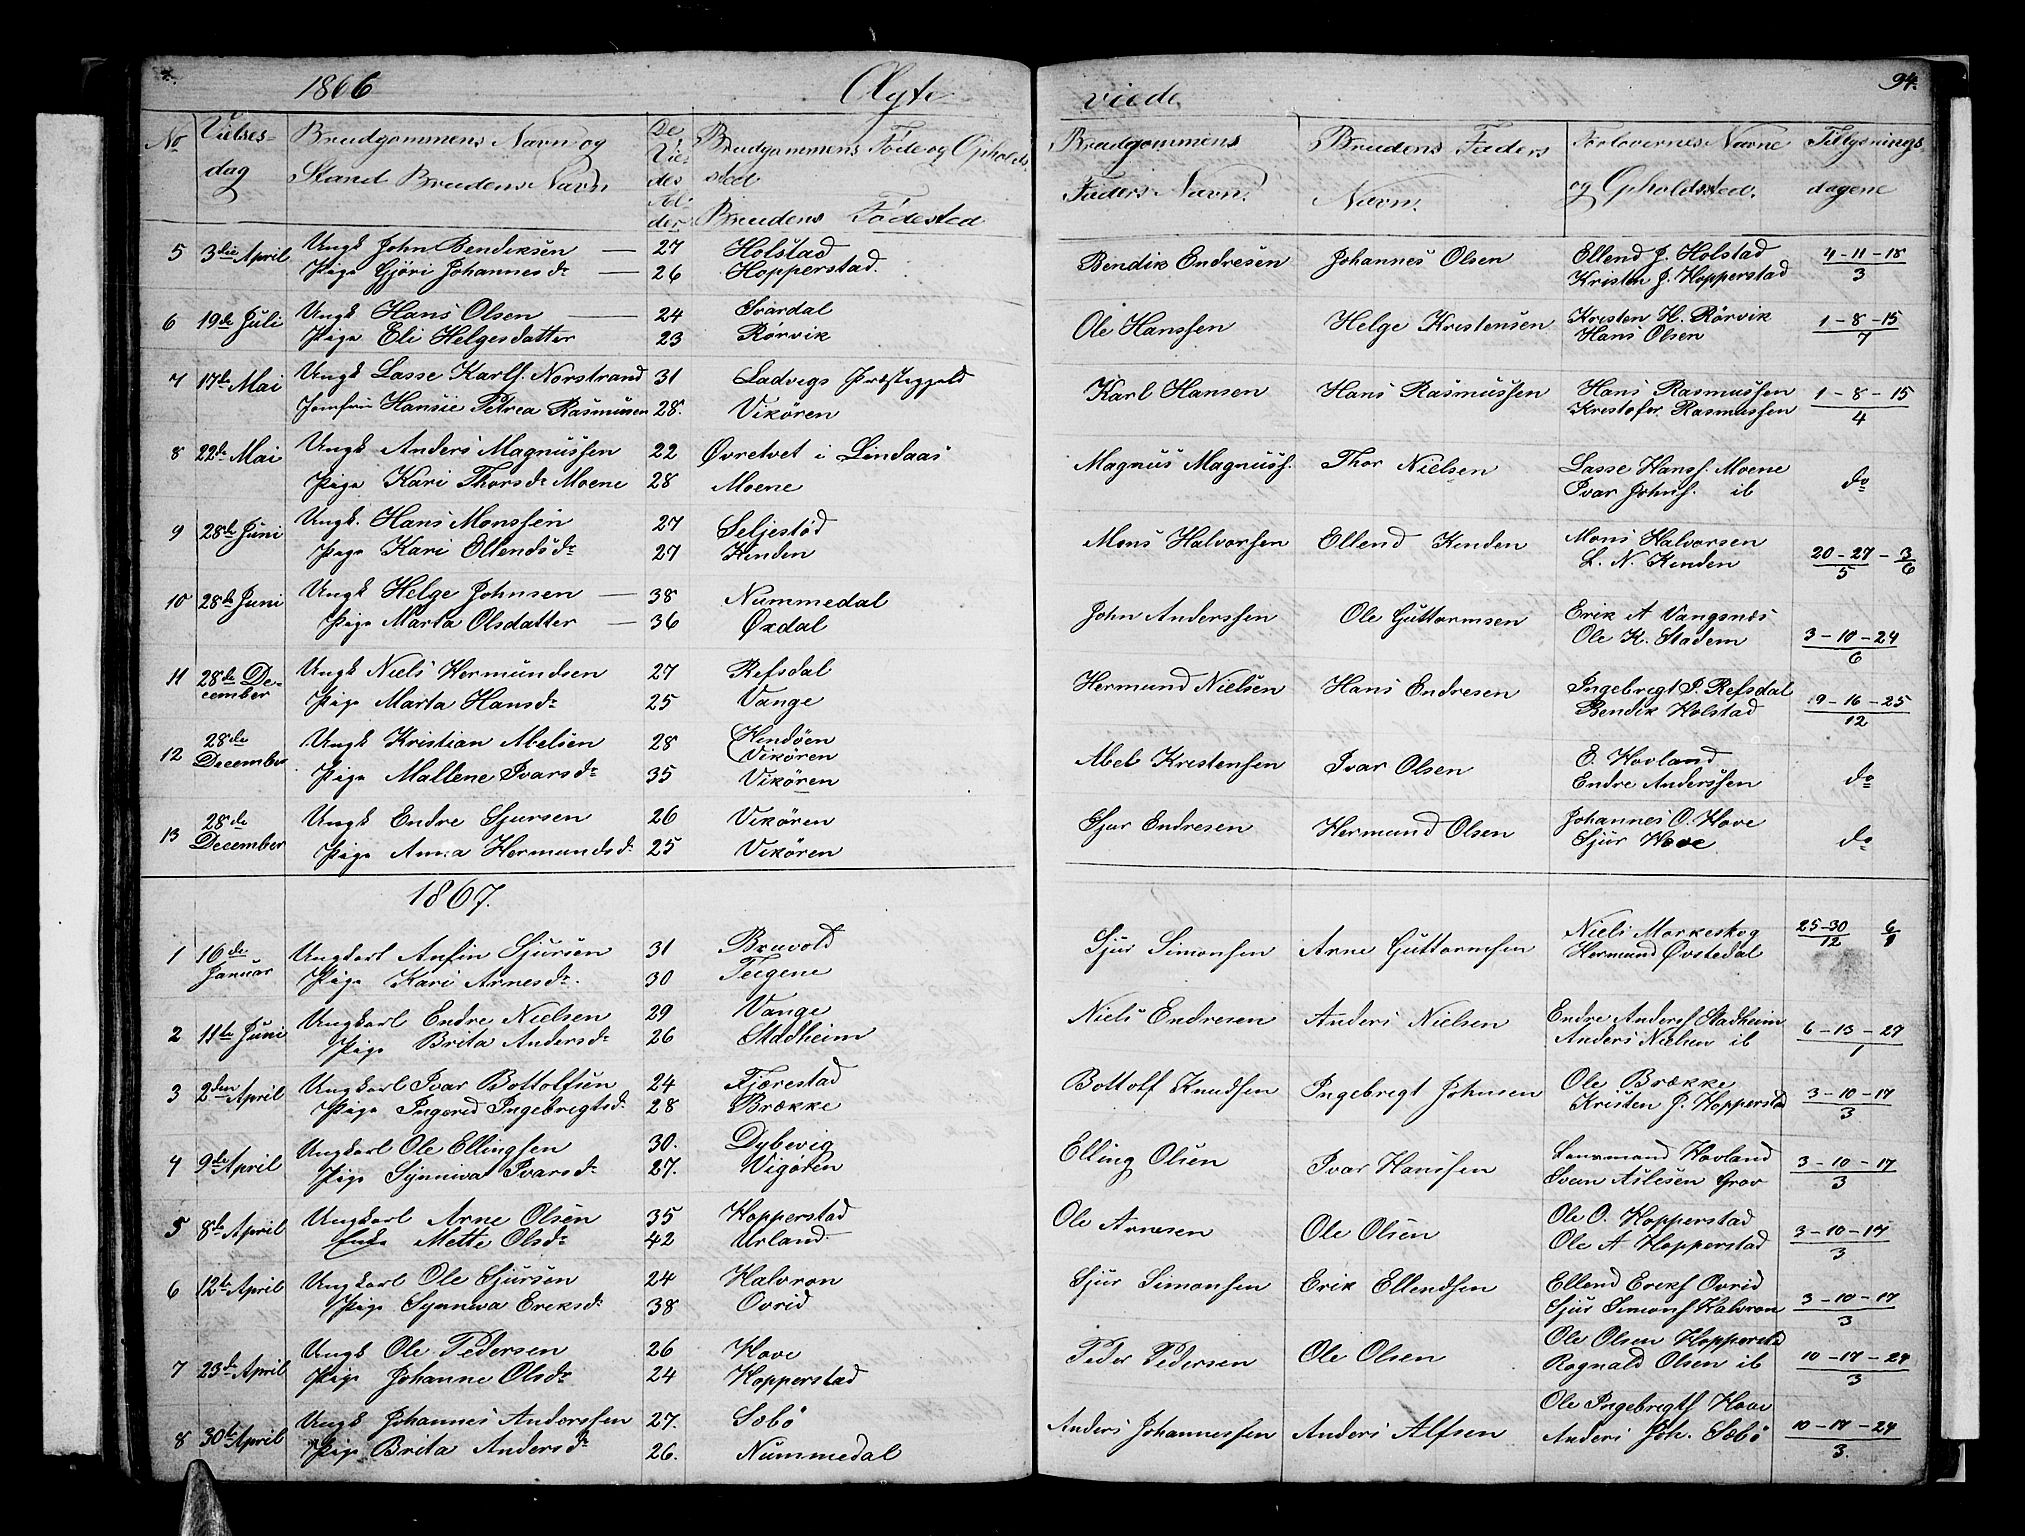 1866 Ægte viede 94.
No Vielses-dag Brudgommens Navn og Stand Brudens Navn De Viedes Alder Brudgommens Føde og Opholdssted Brudens Fødested Brudgommens Faders Navn. Brudens Faders Navn. Forlovernes Navne og Opholdssted. Tillysnings-dagene
5 3die April Ungk John Bendiksen — 27 Holstad Bendik Endresen Johannes Olsen Ellend J. Holstad 4-11-18
Pige Gjöri Johannesdr — 26 Hopperstad. Kristen J. Hopperstad 3
6 19de Juli Ungk Hans Olsen — 24 Svardal Ole Hanssen Helge Kristensen Kristen H. Rörvik 1-8-15
Pige Eli Helgesdatter 23 Rörvik Hans Olsen 7
7 17de Mai Ungk Lasse Karls. Norstrand 31 Ladvigs Præstegjeld Karl Hansen Hans Rasmussen Hans Rasmussen 1-8-15
Jomfru Hansie Petrea Rasmussen 28. Vikören Kristofer Rasmussen 4
8 22de Mai Ungk Anders Magnussen 22 Øvretvet i Lindaas Magnus Magnuss. Thor Nielsen Lasse Hanss. Moene do
Pige Kari Thorsdr Moene 28 Moene Ivar Johns. ib
9 28de Juni Ungk. Hans Monssen 27 Seljestöd Mons Halvorsen Ellend Hinden Mons Halvorsen 20-27-3
Pige Kari Ellendsdr 27 Hinden L. N. Hinden 5 6
10 28de Juni Ungk Helge Johnsen — 38 Nummedal John Anderssen Ole Guttormsen Erik A Vangsnes 3-10-24
Pige Marta Olsdatter — 36 Øxdal Ole K. Stadem 6
11 28de December Ungk Niels Hermundsen 27 Refsdal Hermund Nielsen Hans Endresen Ingebrigt I. Refsdal 19-16-25
Pige Marta Hansdr 25 Vange Bendik Holstad 12
12 28de December Ungk Kristian Abelsen 28 (Hendöen Vikören Abel Kristensen Ivar Olsen E. Hovland do
Pige Mallene Ivarsdr 35 Vikören Endre Anderssen
13 28de December Ungk Endre Sjursen 26 Vikören Sjur Endresen Hermund Olsen Johannes O. Hove do
Pige Anna Hermundsdr 25 Vikören Sjur Hove
1867.
1 16de Januar Ungkarl Anfin Sjursen 31 Bruvold Sjur Simonsen Arne Guttormsen Niels Morkeskog 25-30 6
Pige Kari Arnesdr. 30 Teigene Hermund Øvstedal 12 1
2 11te Juni Ungkarl Endre Nielsen 29 Vange Niels Endresen Anders Nielsen Endre Anders. Stadheim 6-13-27
Pige Brita Andersdr 26 Stadheim Anders Nielsen ib 1
3 2den April Ungkarl Ivar Bottolfsen 24 Fjærestad Bottolf Knudsen Ingebrigt Johnsen Ole Brække 3-10-17
Pige Ingerid Ingebrigtsdr 28 Brække Kristen J. Hopperstad 3
4 9de April Ungkarl Ole Ellingsen 30. Dybevig Elling Olsen Ivar Hanssen Lensmand Hovland 3-10-17
Pige Synniva Ivarsdr 27. Vigören Svein Aslesen Grov 3
5 8de April Ungkarl Arne Olsen 35 Hopperstad Ole Arnesen Ole Olsen Ole O. Hopperstad 3-10-17
Enke Mette Olsdr 42 Urland Ole A Hopperstad 3
6 12te April Ungkarl Ole Sjursen 24 Halvron Sjur Simonsen Erik Ellendsen Ellend Eriks. Ovrid 3-10-17
Pige Synniva Eriksdr 38 Ovrid Sjur Simons. Halvron 3
7 23de April Ungk Ole Pedersen 26 Hove Peder Pedersen Ole Olsen Ole Olsen Hopperstd 10-17-24
Pige Johanne Olsdr 24 Hopperstad Rognald Olsen ib 3
8 30te April Ungk Johannes Anderssen 27. Sæbö Anders Johannessen Anders Alfsen Ole Ingebrigts. Hove 10-17-24
Pige Brita Andersdr 26. Nummedal Anders Joh. Sæbö 3.